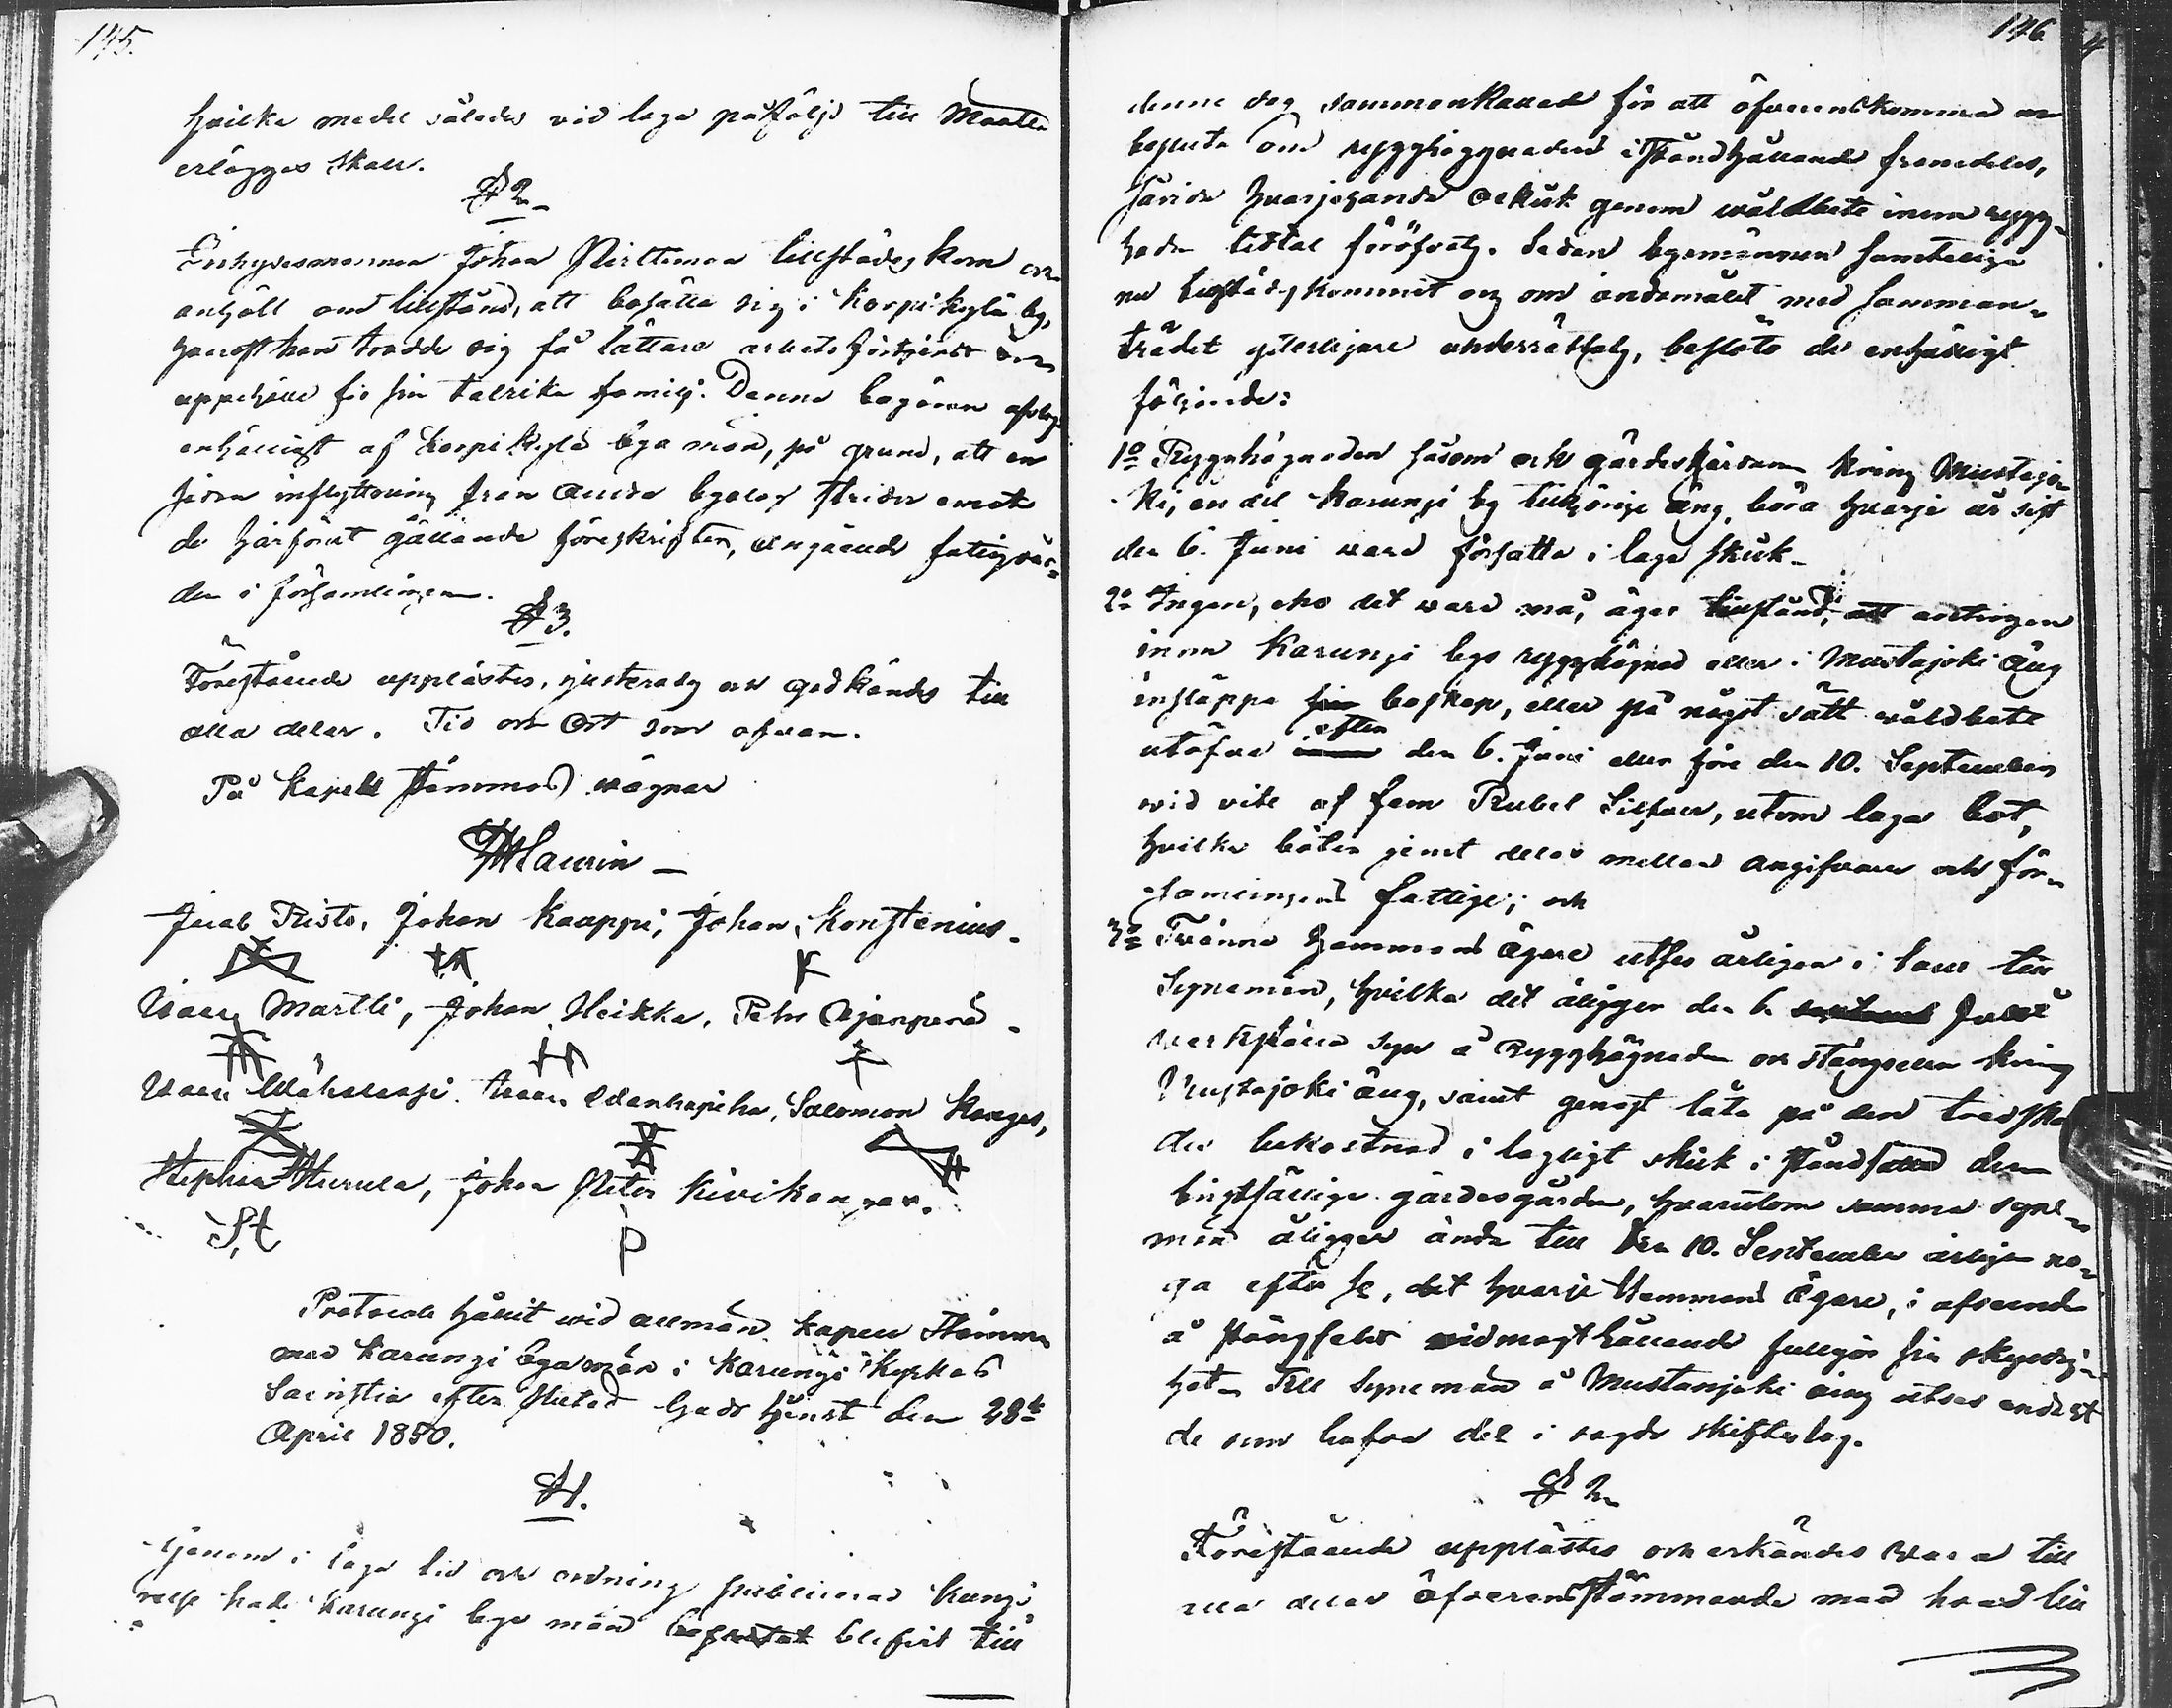 145.
hvilka medel således vid laga påföljd till
erläggas skall.
§ 2.
Inhysesmannen Johan Pirttimaa tillstädes kom och
anhöll om tillstånd, att bosätta sig i Korpikylä by,
hwarest han trodde sig få lättare arbetsförtjenst och
uppehälle för sin talrika familj. Denna begäran afslogs
enhälligt af Korpikylä byamän, på grund, att en
sådan inflyttning från andra byalag strider emot
de härförut gällande föreskrifter, angående fattigvår-
den i församlingen.
§ 3.
Förestående upplästes, justerades och godkändes till
alla delar. Tid och Ort som ofvan.
På Kapell Stämmans vägnar
Laurin
Jacob Risto, Johan Kauppi, Johan Konstenius.
Isac Martti, Johan Heikka, Petr
Isac Isac Salomon Kangas,
Stephan Johan Peter Kivikangas.
Protocoll hållit wid allmän Kapell Stämma
med Karungi byamän i Karungi Kyrkas
Sacristia efter slutad Gudstjenst den 28de
April 1850.
§ 1.
Genom i laga tid och ordning publicerad kungö-
relse hade Karungi bya män blifvit till
146
denne dag sammankallade för att öfverenskomma och
besluta om rygghögnadens iståndhållande framdeles,
såvida hvarjehanda oskick genom wåldbete inom rygg-
haden tidtals föröfvats. Sedan byamännen samtelige
nu tillstädeskommit och om ändamålet med samman-
trädet ytterligare underrättats, beslöto de enhälligt
följande:
1o Rygghögnaden såsom och gärdesgårdarna kring Mustajo-
ki, en del Karungi by tillhörige äng, böra hvarje år sist
den 6. Juni vara försatta i laga skick.
2o Ingen, eho det vara må, äger tillstånd, att antingen
inom Karungi bys rygghögnad eller i Mustajoki äng
insläppa sin boskap, eller på något sätt wåldbete
utöfva efter den 6. Juni eller före den 10. September
vid vite af fem Rubel Silfver, utom laga bot,
hvilka böter jemt delas mellan angifvaren och för-
samlingens fattige; och
3o Tvänne hemmans ägare utses årligen i tour till
Synemän, hvilka det åligger den 6. Juni
verkställa syn å Rygghögnaden och stängseln kring
Mustajoki äng, samt genast låta på den tredska-
des bekostnad i lagligt skick i ståndsätta den
bristfällige gärdesgården, hvarutom samma syne-
män åligger ända till den 10. September årligen no-
ga efter se, det hvarje Hemmans Ägare, i afseende
å stängslets vidmagthållande fullgör sin skyldig-
het. Till Synemän å Mustanjoki äng utses endast
de som hafva del i sagde skifteslag.
§ 2.
Förestående upplästes och erkändes vara till
alla delar öfverensstämmande med hvad till